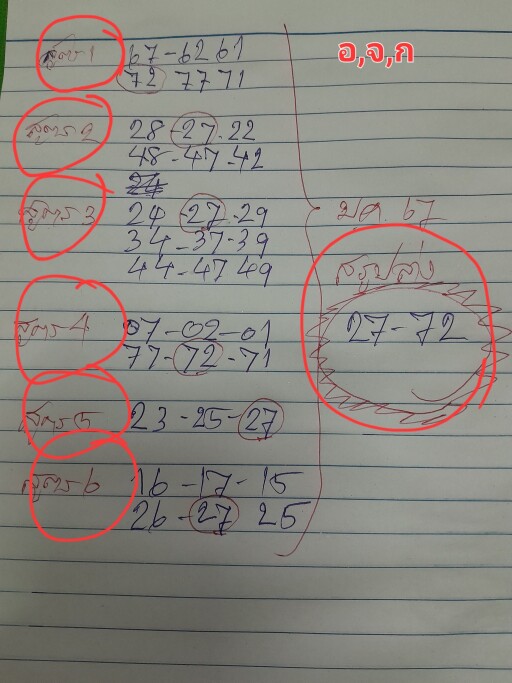 อ,จ,ก
สูตร 1 67-62 61
72 77 71
สูตร 2 28-27-22
48-47-42
24
สูตร 3 24-27-29
34-37-39
44-47 49
สูตร 4 07-02-01
77-72-71
สูตร 5 23-25-27
สูตร 6 16-17-15
26-27 25
ม.ค. 67
สรุปล่าง
27-72